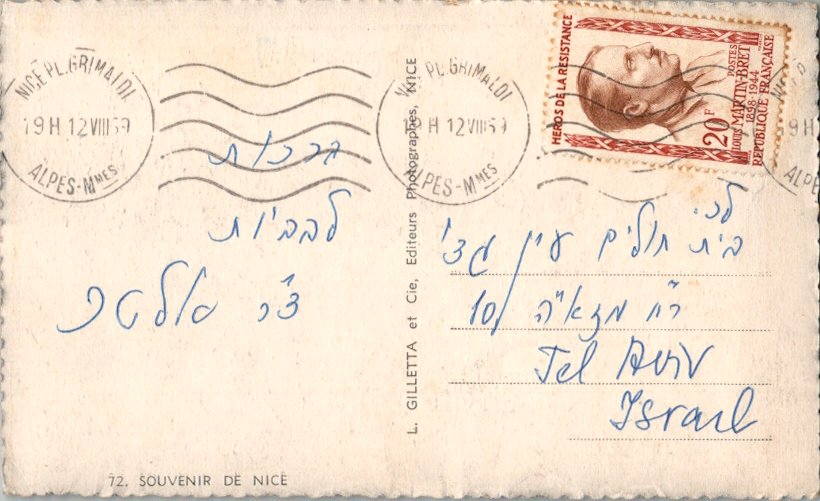 NICE PL. GRIMALDI
19H 12 VIII 59
ALPES-MMES
NICE PL. GRIMALDI
19H 12 VIII 59
ALPES-MMES
HEROS DE LA RESISTANCE
20F
LOUIS MARTIN-BRET
POSTES
1898-1944
REPUBLIQUE FRANÇAISE
19H
ברכות
לבביות
ד"ר
L. GILLETTA et Cie, Editeurs Photographes, NICE
לכ.
בית חולים עין גדי
רח' מזא"ה 10
Tel Aviv
Israel
72. SOUVENIR DE NICE